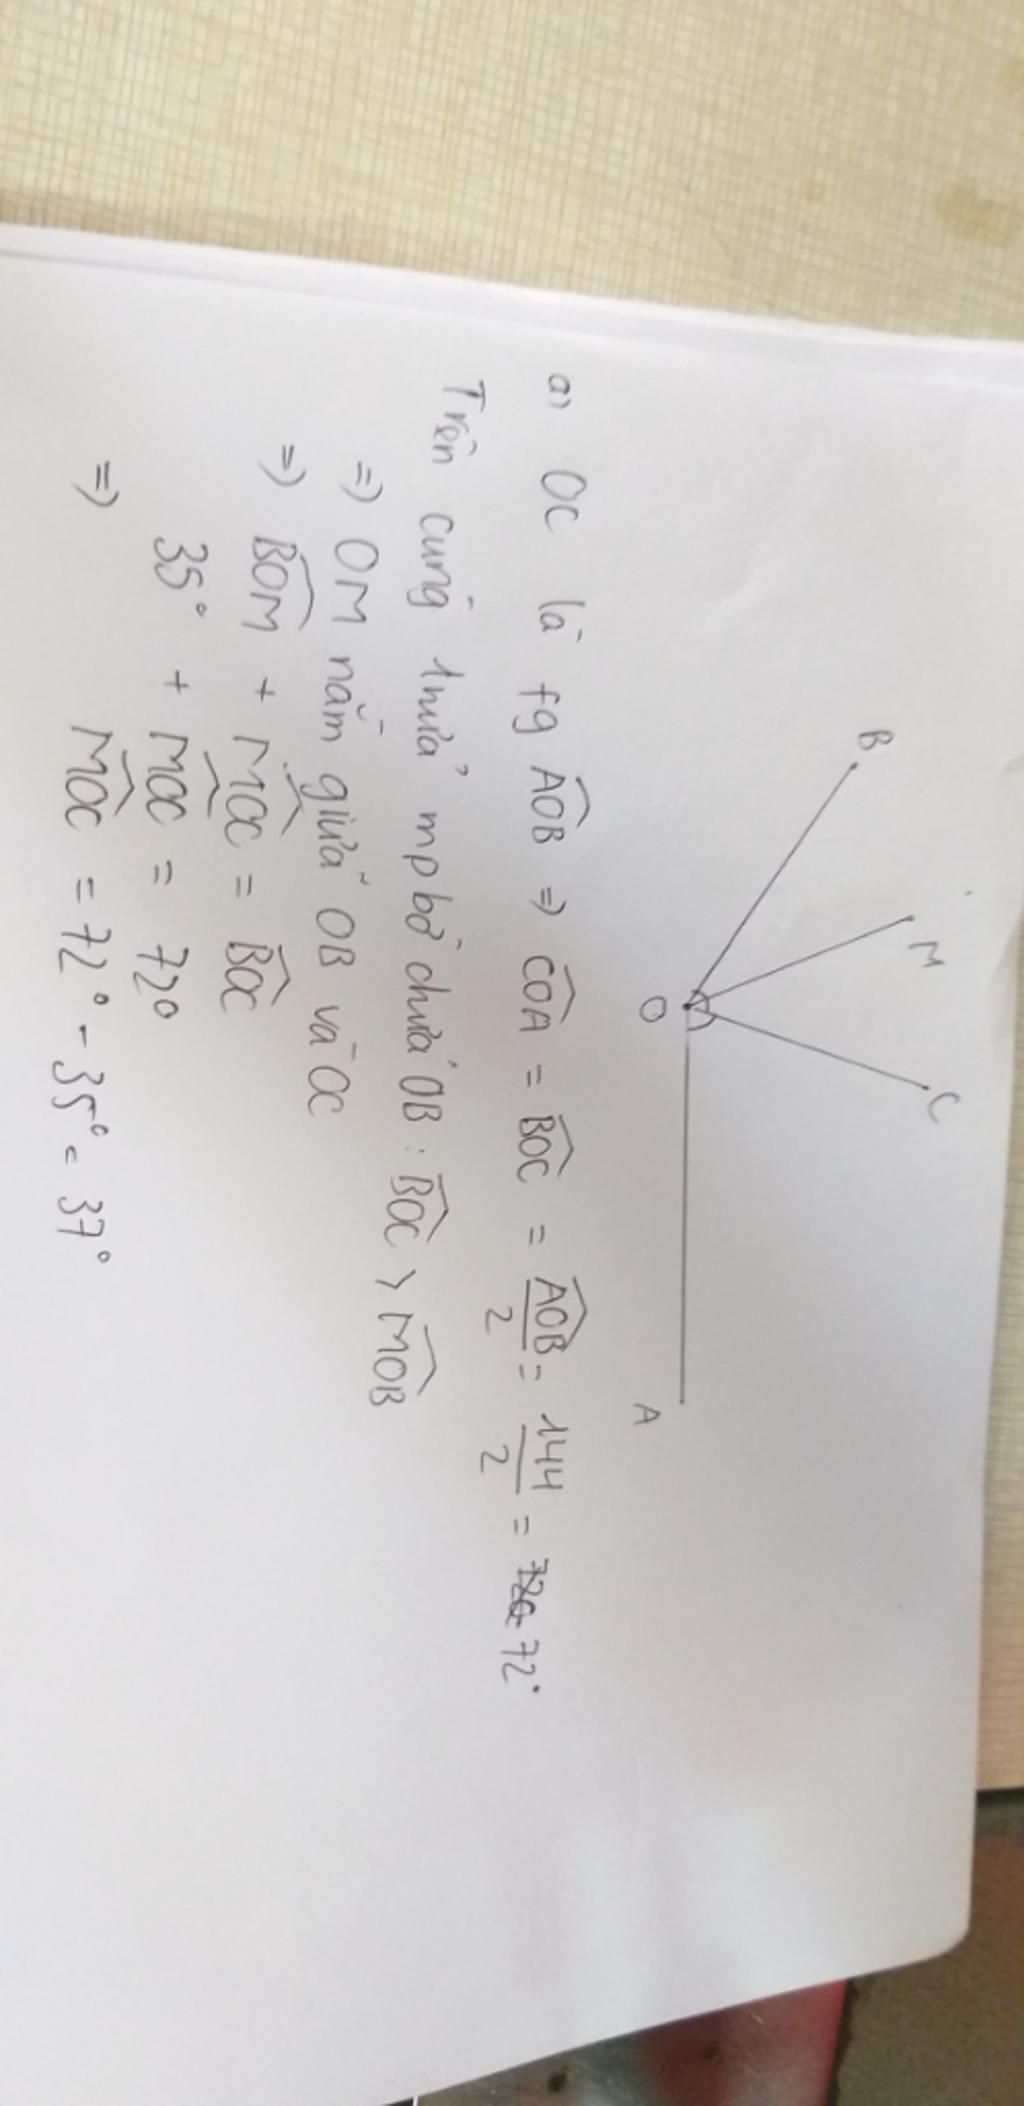 B
M
C
O
A
a) OC là fg AOB => COA = BOC = AOB/2 = 144/2 = 72°
Trên cùng 1 nửa mp bờ chứa OB : BOC > MOB
=> OM nằm giữa OB và OC
=> BOM + MOC = BOC
35° + MOC = 72°
=> MOC = 72° - 35° = 37°